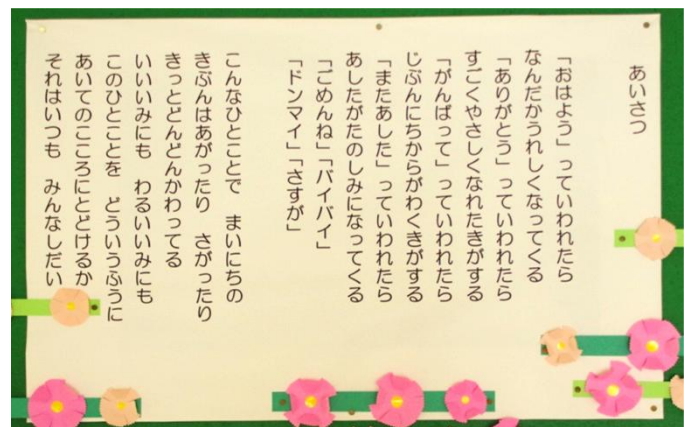 あいさつ
「おはよう」っていわれたら
なんだかうれしくなってくる
「ありがとう」っていわれたら
すごくやさしくなれたきがする
「がんばって」っていわれたら
じぶんにちからがわくきがする
「またあした」っていわれたら
あしたがたのしみになってくる
「ごめんね」「バイバイ」
「ドンマイ」「さすが」
こんなひとことで　まいにちの
きぶんはあがったり　さがったり
きっとどんどんかわってる
いいいみにも　わるいいみにも
このひとことを　どういうふうに
あいてのこころにとどけるか
それはいつも　みんなしだい